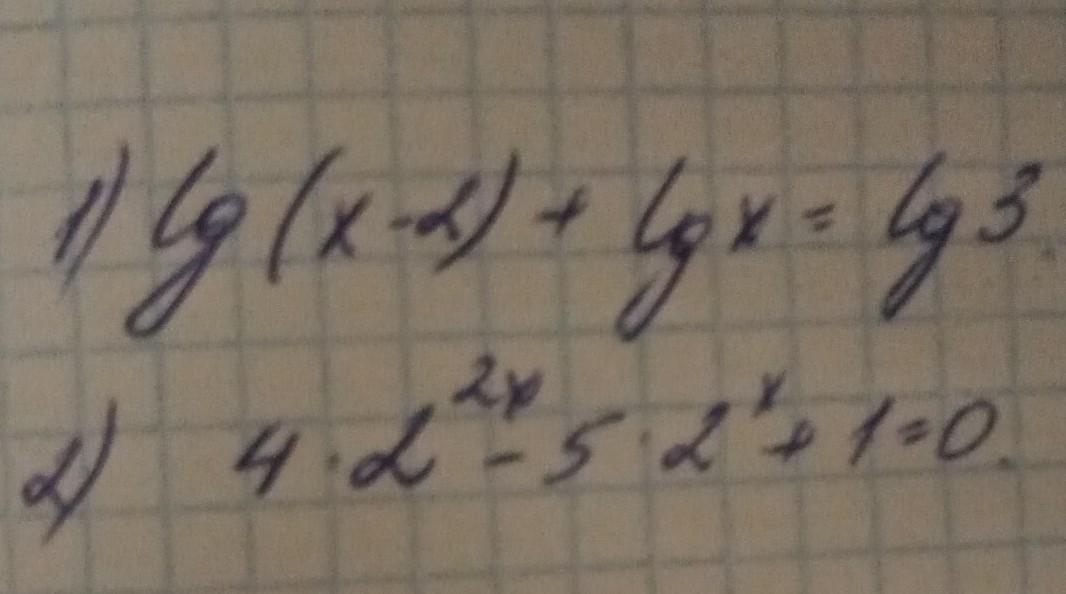 1) lg (x-2) + lg x = lg 3.
2) 4 · 2^{2x} - 5 · 2^x + 1 = 0.